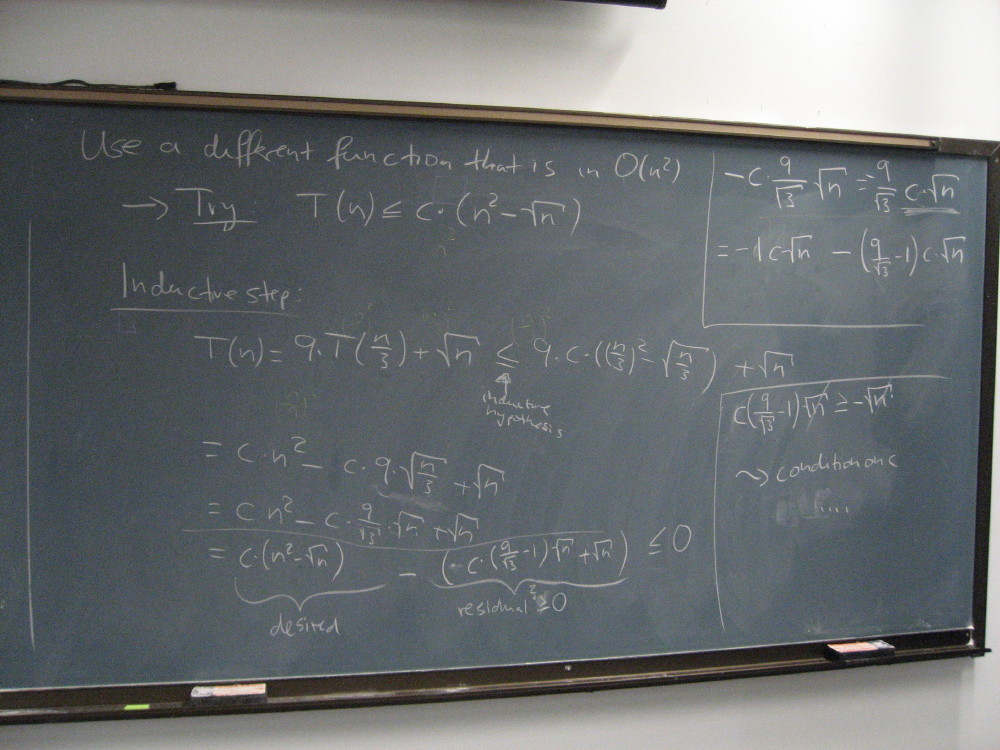 Use a different function that is in O(n²)
→ Try: T(n) ≤ c·(n²-√n)
Inductive step:
T(n) = 9·T(n/3) + √n ≤ 9·c·((n/3)² - √(n/3)) + √n
inductive
hypothesis
= c·n² - c·9·√(n/3) + √n
= cn² - c·9/√3·√n + √n
= c·(n²-√n) - (-c·(9/√3-1)√n + √n) ≤ 0
desired
residual ≥ 0
-c·9/√3·√n = 9/√3 c·√n
= -1c√n - (9/√3-1)c·√n
c(9/√3-1)√n ≥ -√n
⤳ condition on c
....